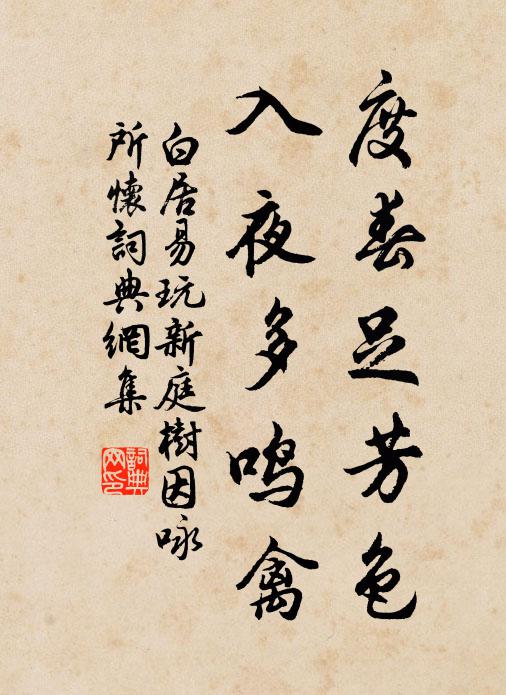 度春足芳色
入夜多鳴禽
白居易玩新庭樹因咏
所懷詞典網集
詞典
网印